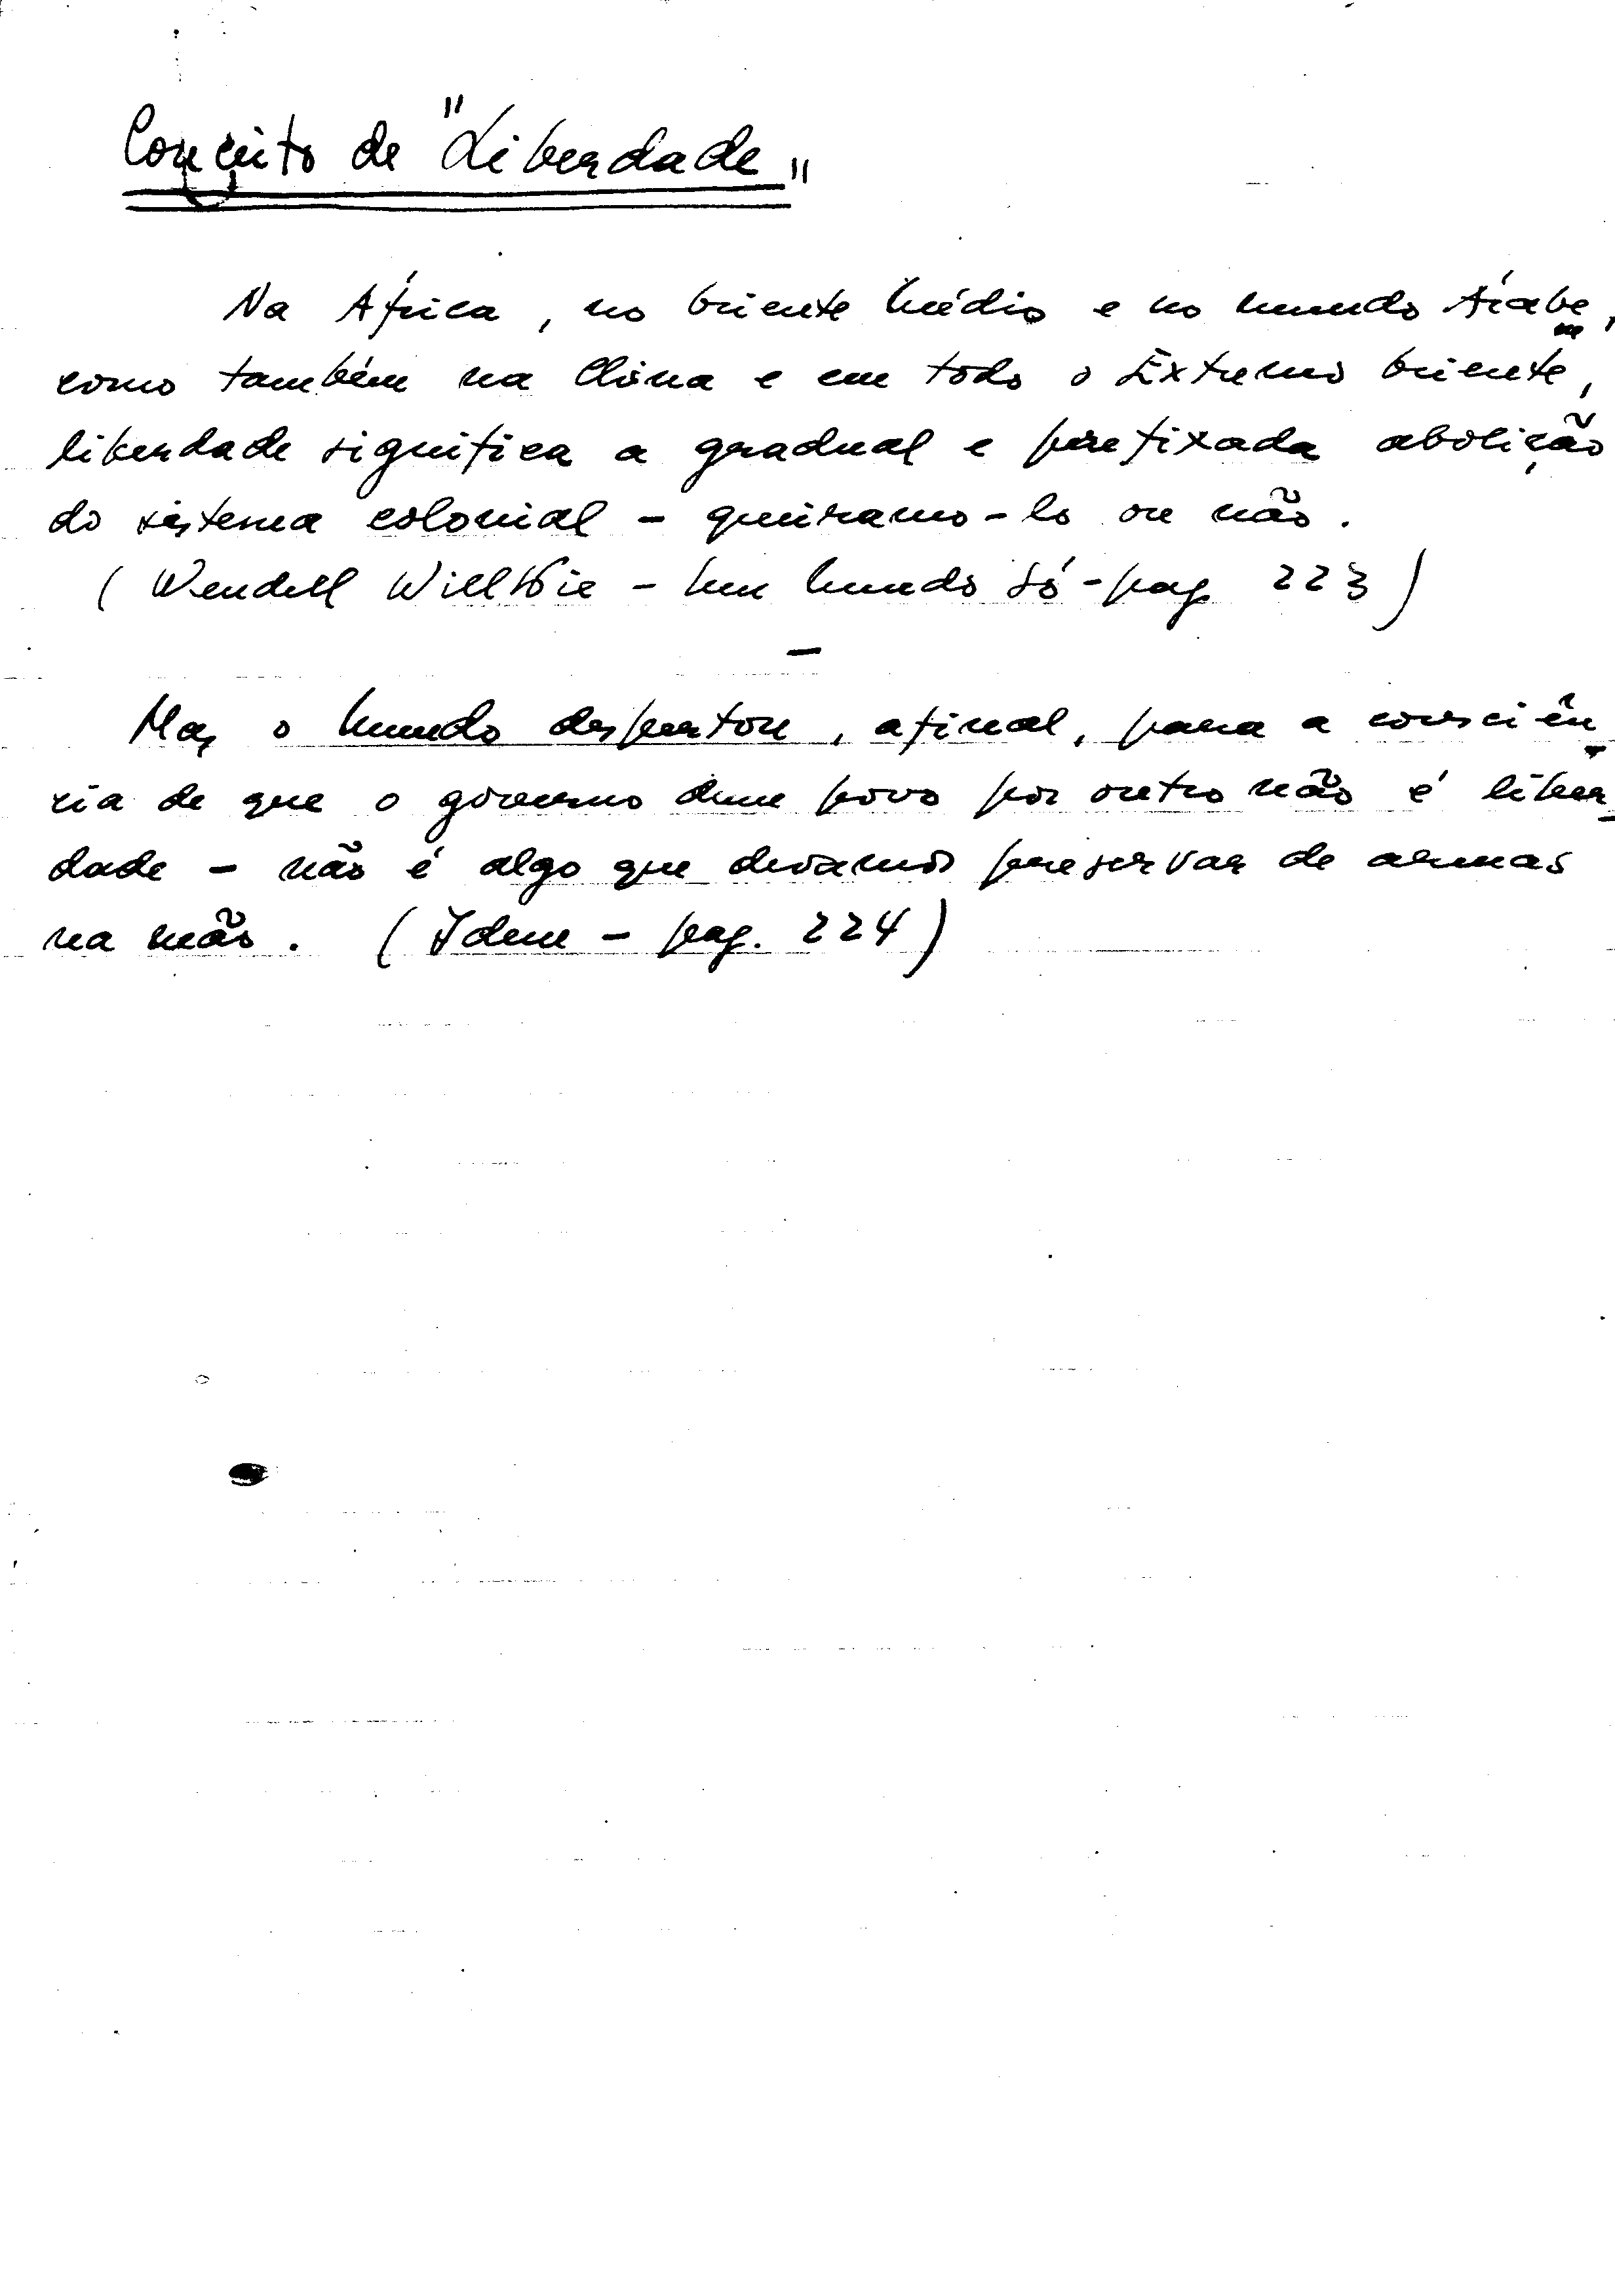 Conceito de "Liberdade"
Na África, no Oriente Médio e no mundo Árabe,
como também na China e em todo o Extremo Oriente,
liberdade significa a gradual e prefixada abolição
do sistema colonial - queiramo-lo ou não.
(Wendell Willkie - Um Mundo Só - pag 223)
-
Mas o mundo despertou, afinal, para a consciên-
cia de que o governo dum povo por outro não é liber-
dade - não é algo que devamos preservar de armas
na mão. (Idem - pag. 224)